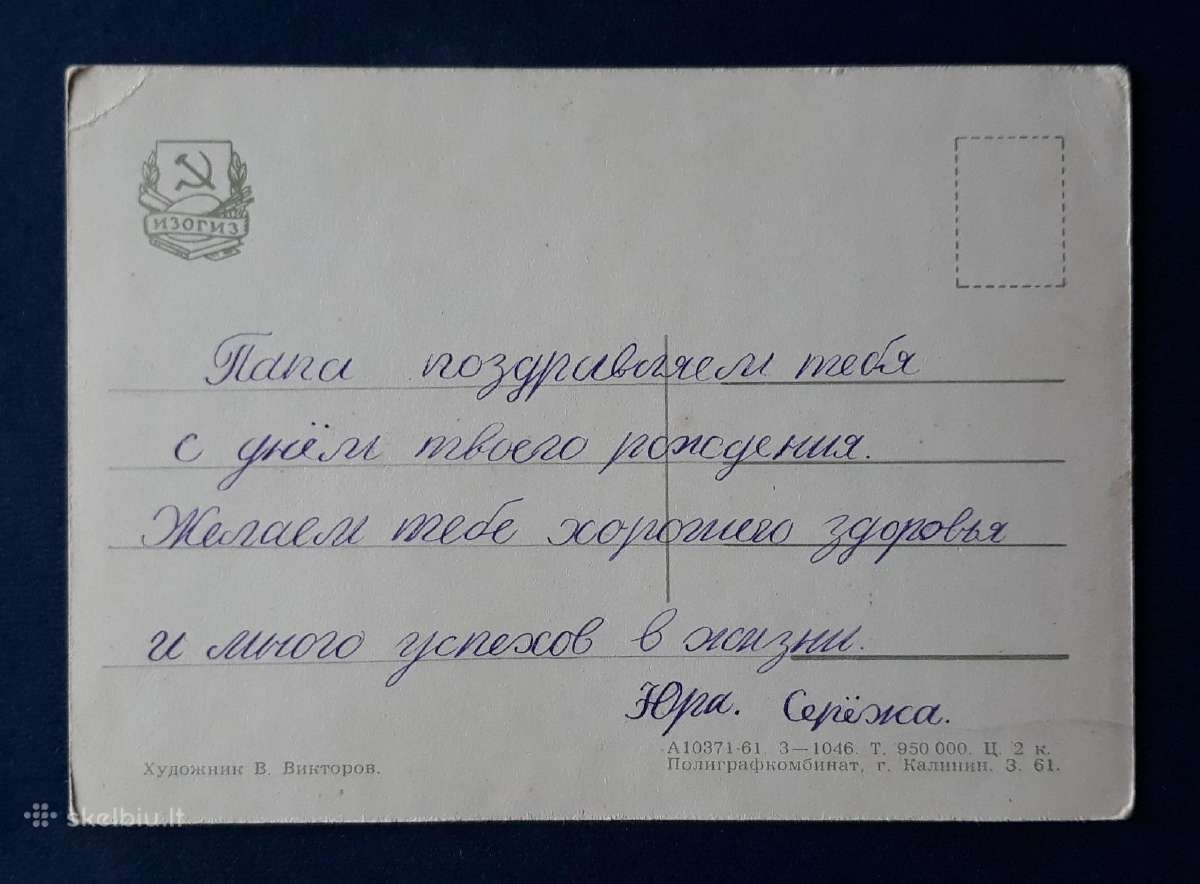 ИЗОГИЗ
Папа поздравляем тебя
с днём твоего рождения.
Желаем тебе хорошего здоровья
и много успехов в жизни.
Юра. Серёжа.
Художник В. Викторов.
А10371-61. 3—1046. Т. 950 000. Ц. 2 к.
Полиграфкомбинат, г. Калинин. З. 61.
skelbiu.lt